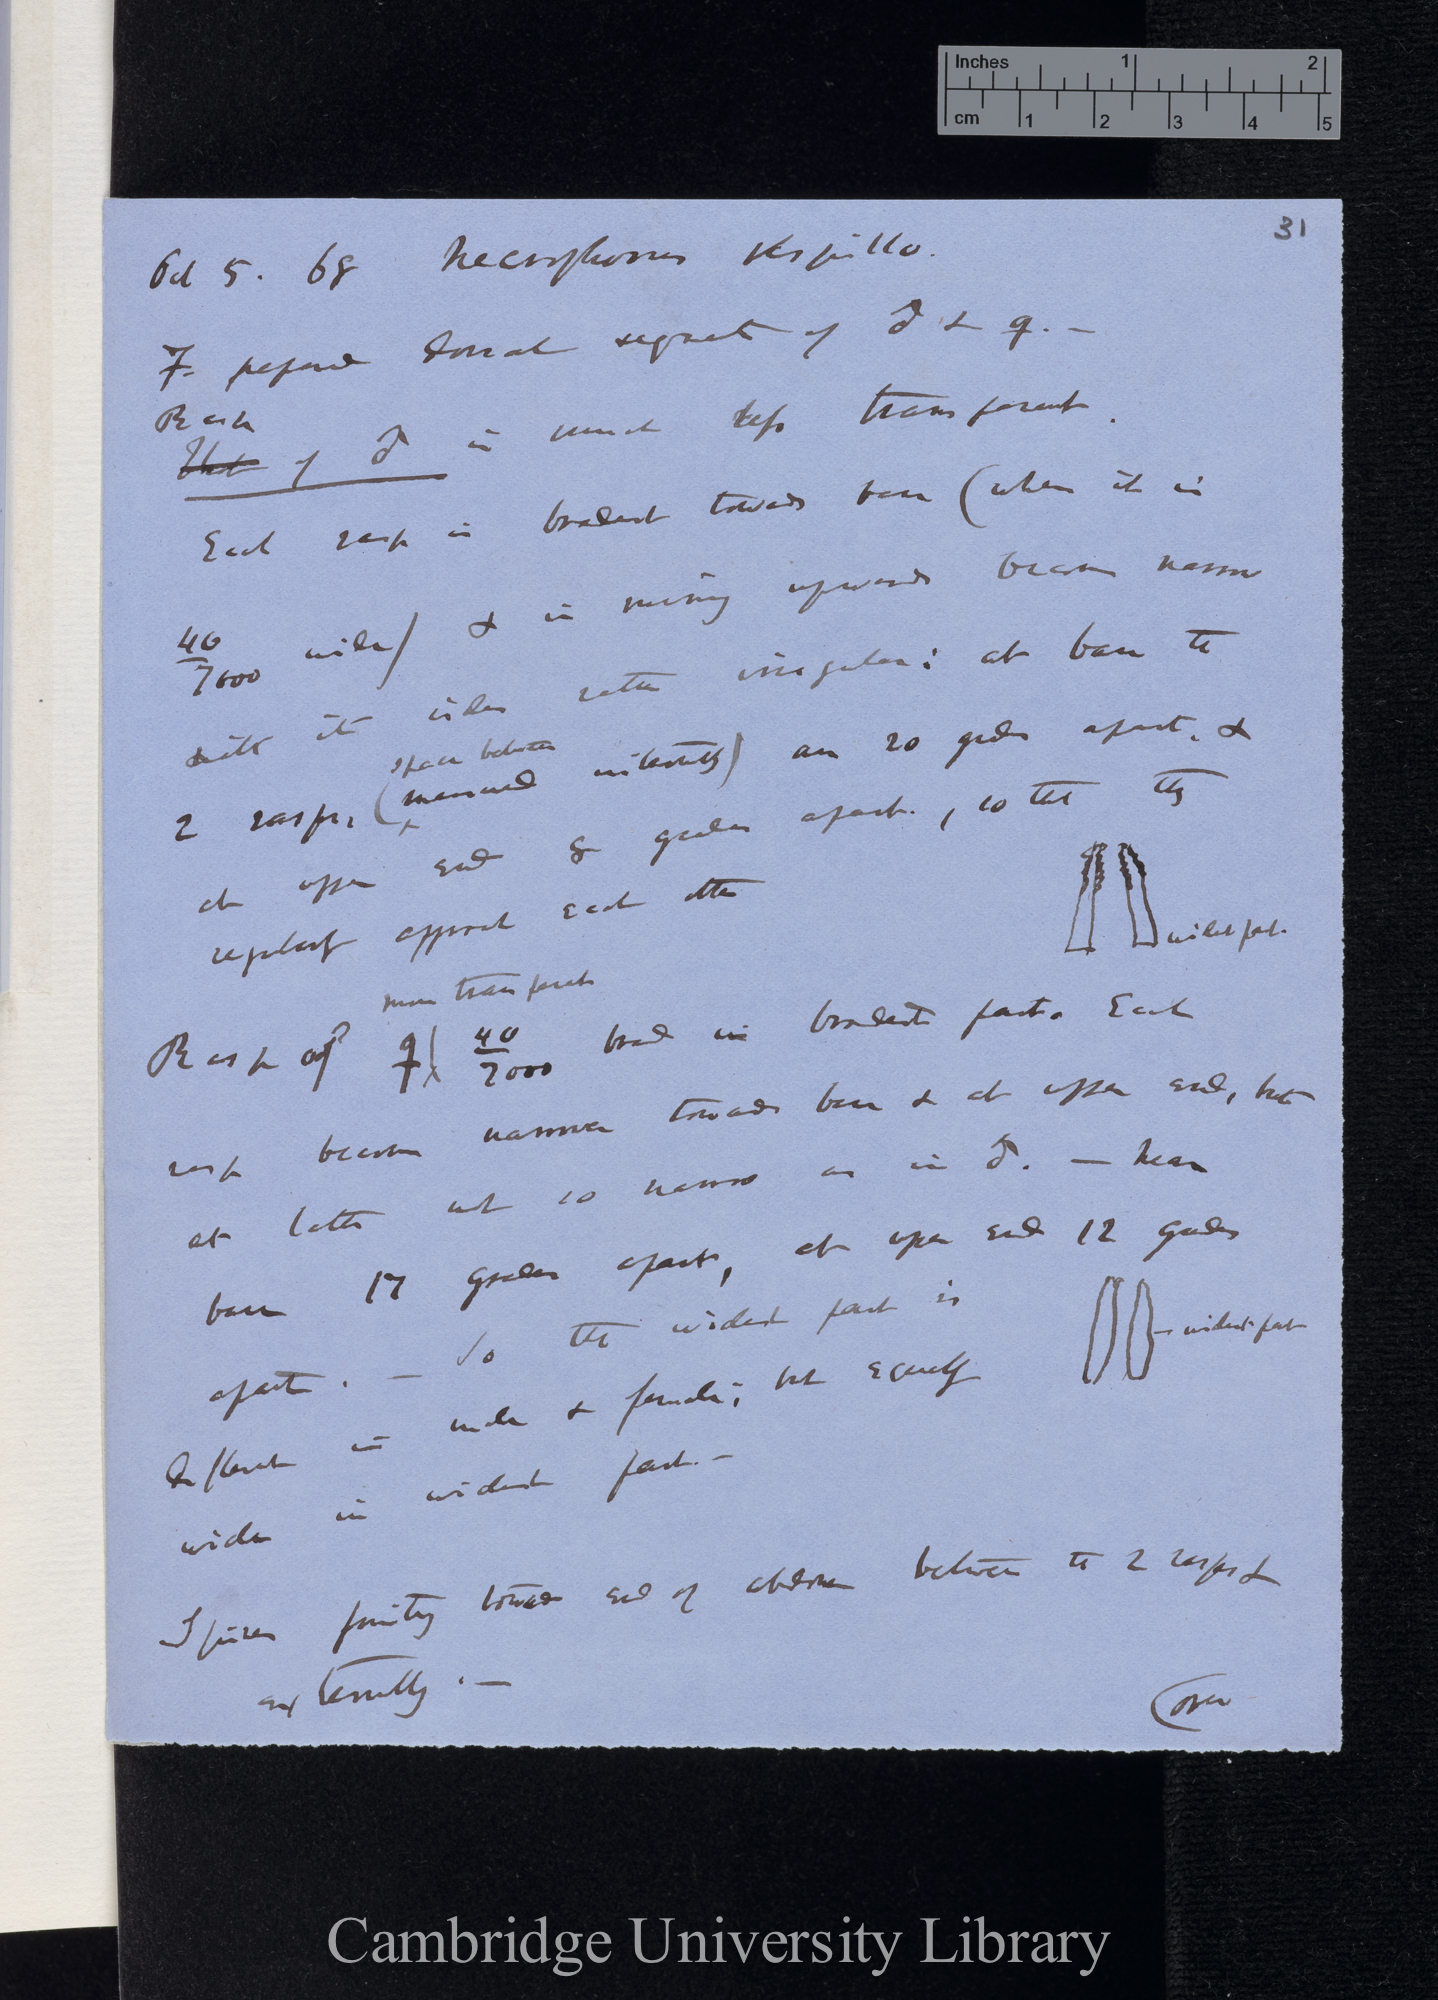 Inches 1 2
cm 1 2 3 4 5
31
Oct 5. 68 Necrophorus Vespillo.
I prepared dorsal segment of ♂ & ♀. —
Rasp
That of ♂ is much less transparent.
Each rasp is broadest towards base (where it is
40/7000 wide) & in running upwards becomes narrow
with its sides rather irregular: at base the
space between
2 rasps, (measured internally) are 20 grades apart, &
at upper end 8 grades apart., so that they
regularly approach each other
widest part.
more transparent
Rasp of ♀ 40/7000 broad in broadest part. Each
rasp becomes narrower towards base & at upper end, but
at latter not so narrow as in ♂. — Near
base 17 grades apart, at upper end 12 grades
apart. — So that widest part is
widest part
different in male & female; but equally
wide in widest part. —
Spines pointing towards end of abdomen between the 2 rasps &
externally. —
(over
Cambridge University Library